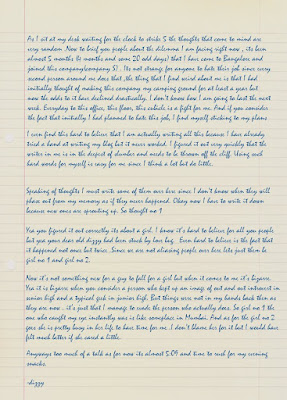 As I sit at my desk waiting for the clock to strike 5 the thoughts that come to mind are
very random. Now to brief you people about the dilemma I am facing right now , its been
almost 5 months (4 months and some 20 odd days) that I have come to Bangalore and
joined this company(company S) . Its not strange for anyone to hate their job since every
second person around me does that ,the thing that I find weird about me is that I had
initially thought of making this company my camping ground for at least a year but
now the odds to it have declined drastically. I don't know how I am going to last the next
week. Everyday to this office, this floor, this cubicle is a fight for me. And if you consider
the fact that initially I had planned to hate this job, I find myself sticking to my plans.
I even find this hard to believe that I am actually writing all this because I have already
tried a hand at writing my blog but it never worked. I figured it out very quickly that the
writer in me is in the deepest of slumber and needs to be thrown off the cliff. Using such
hard words for myself is easy for me since I think a lot but do little.
Speaking of thoughts I must write some of them over here since I don't know when they will
phase out from my memory as if they never happened. Okay now I have to write it down
because new ones are sprouting up. So thought no 1
Yea you figured it out correctly its about a girl. I know it's hard to believe for all you people
but yea your dear old dizzy had been struck by love bug. Even hard to believe is the fact that
it happened not once but twice. Since we are not aliasing people over here lets just them be
girl no 1 and girl no 2.
Now it's not something new for a guy to fall for a girl but when it comes to me it's bizarre.
Yea it is bizarre when you consider a person who kept up an image of out and out introvert in
senior high and a typical geek in junior high. But things were not in my hands back then as
they are now . it's just that I manage to made the person who actually does. So girl no 1 the
one who caught my eye instantly was is like someplace in Mumbai. And as for the girl no 2
yea she is pretty busy in her life to have time for me. I don't blame her for it but I would have
felt much better if she cared a little.
Anyways too much of a talk as for now its almost 5.09 and time to rush for my evening
snacks.
-dizzy